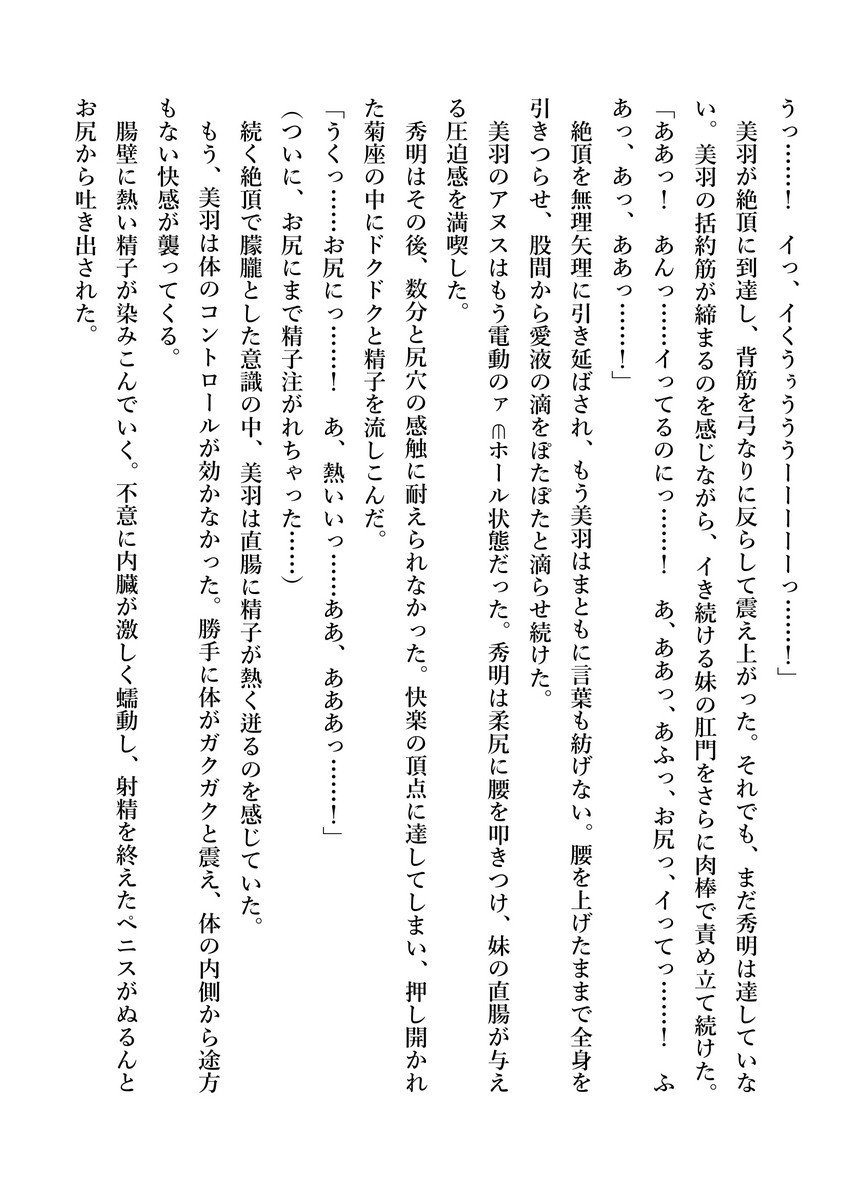 うっ……！　イっ、イくうぅううーーーーーっ……！」
　美羽が絶頂に到達し、背筋を弓なりに反らして震え上がった。それでも、まだ秀明は達していな
い。美羽の括約筋が締まるのを感じながら、イき続ける妹の肛門をさらに肉棒で責め立て続けた。
「ああっ！　あんっ……イってるのにっ……！　あ、ああっ、あふっ、お尻っ、イってっ……！　ふ
あっ、あっ、ああっ……！」
　絶頂を無理矢理に引き延ばされ、もう美羽はまともに言葉も紡げない。腰を上げたままで全身を
引きつらせ、股間から愛液の滴をぽたぽたと滴らせ続けた。
　美羽のアヌスはもう電動のァ ホール状態だった。秀明は柔尻に腰を叩きつけ、妹の直腸が与え
る圧迫感を満喫した。
　秀明はその後、数分と尻穴の感触に耐えられなかった。快楽の頂点に達してしまい、押し開かれ
た菊座の中にドクドクと精子を流しこんだ。
「うくっ……お尻にっ……！　あ、熱いいっ……ああ、あああっ……！」
(ついに、お尻にまで精子注がれちゃった……)
　続く絶頂で朦朧とした意識の中、美羽は直腸に精子が熱く迸るのを感じていた。
　もう、美羽は体のコントロールが効かなかった。勝手に体がガクガクと震え、体の内側から途方
もない快感が襲ってくる。
　腸壁に熱い精子が染みこんでいく。不意に内臓が激しく蠕動し、射精を終えたペニスがぬるんと
お尻から吐き出された。